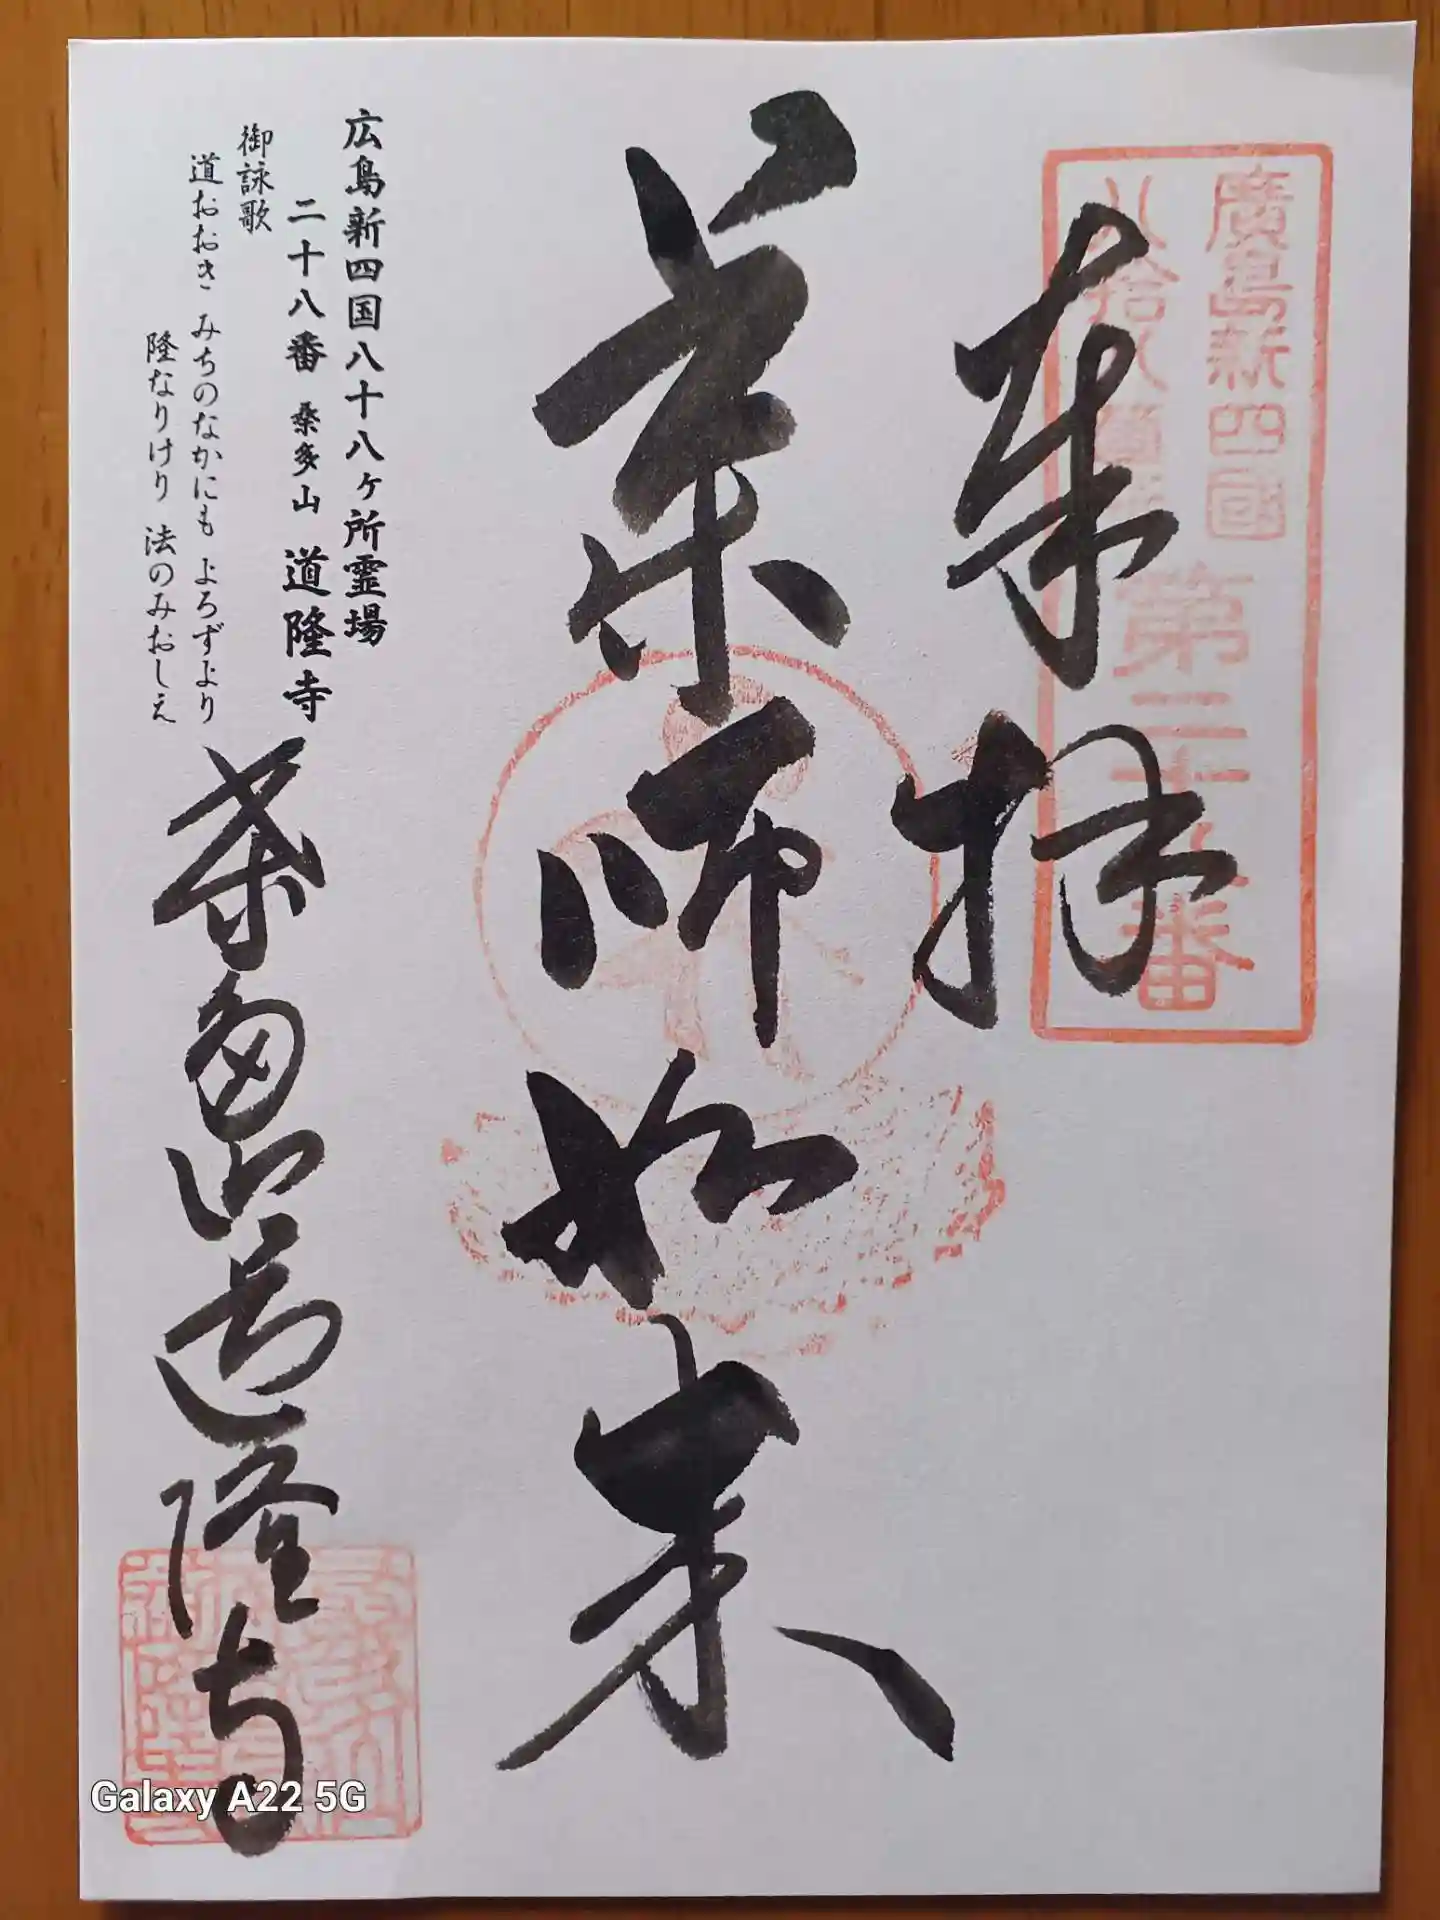 奉拝
廣島新四國
八拾八
第二十八番
薬師如来
広島新四国八十八ヶ所霊場
二十八番 桑多山 道隆寺
御詠歌
道おおき みちのなかにも よろずより
隆なりけり 法のみおしえ
桑多山道隆寺
Galaxy A22 5G